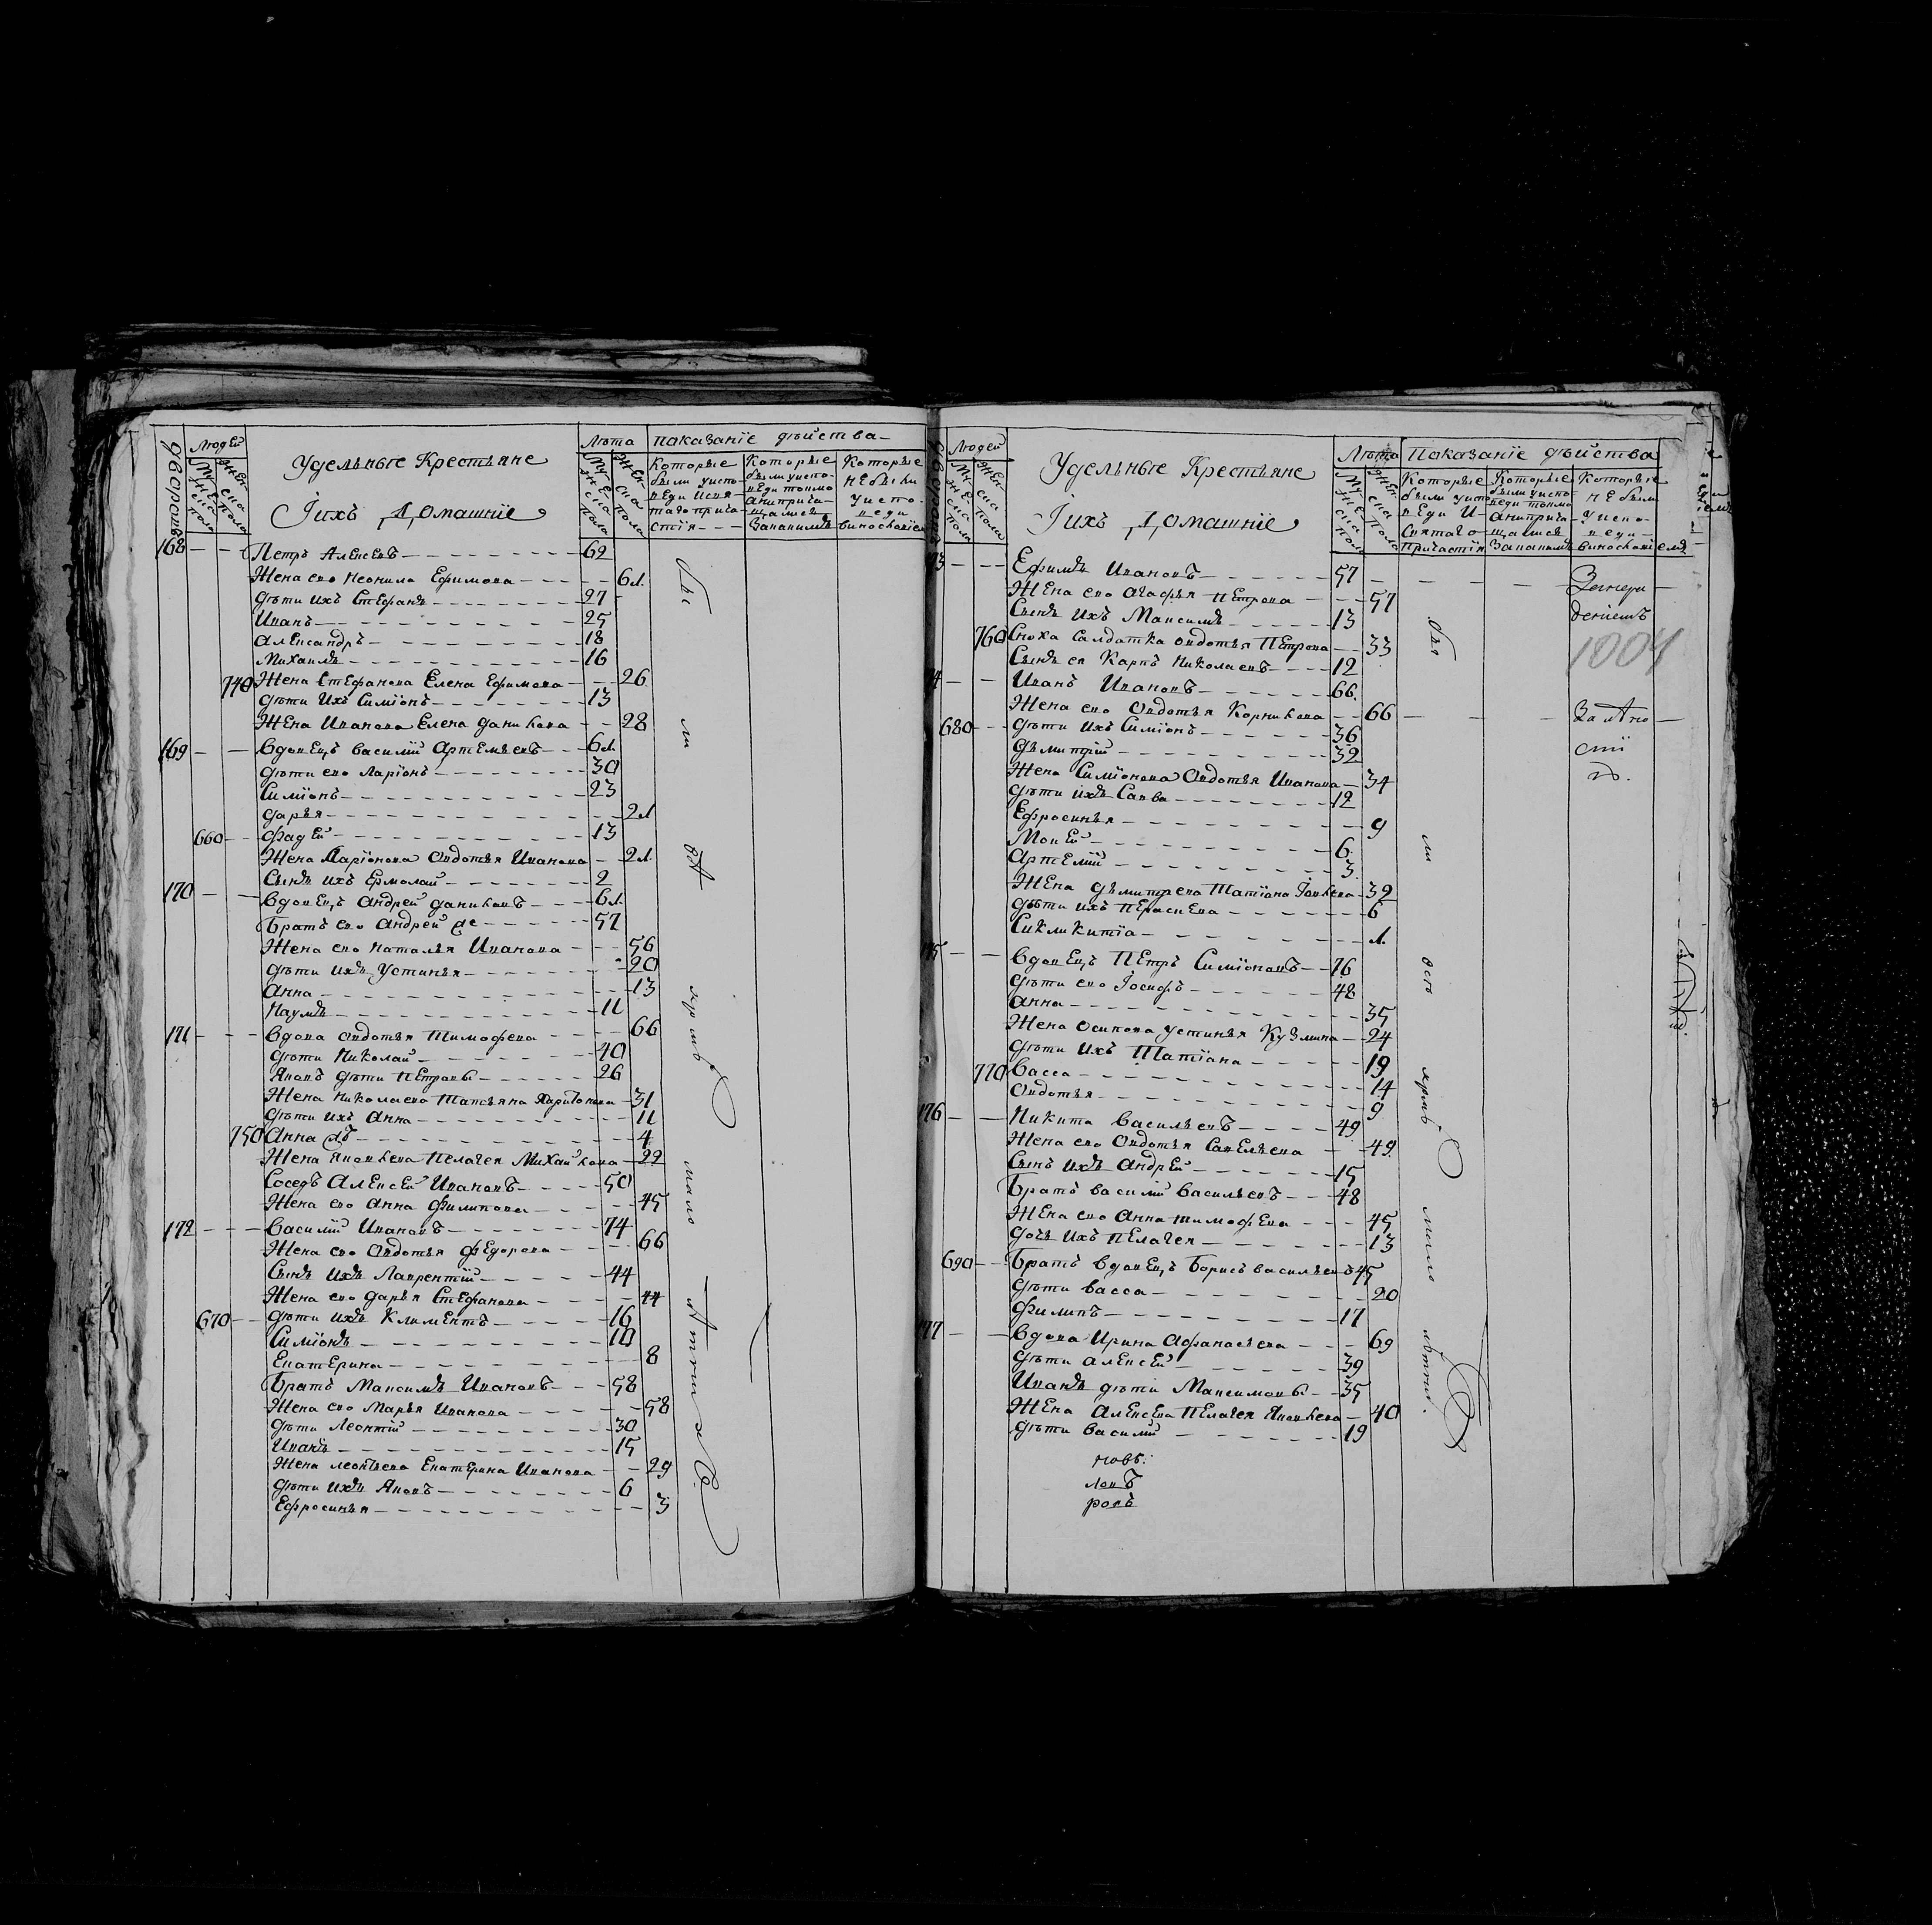 дворовъ
Людей
Мужеска пола
Женска пола
Удельные Крестьяне
Iихъ Домашнiе
Лѣта
Мужеска пола
Женска пола
показанiе дѣйства
Которые были уисповеди исвятаго причастiя
Которые были уисповеди токмо анипричащались
Которые небыли уисповеди
168 Петръ Алексеевъ 62
Жена ево Неонила Ефимова 61
Дѣти ихъ Стефанъ 27
Иванъ 25
Александръ 18
Михаилъ 16
740 Жена Стефанова Елена Ефимова 26
Дѣти Ихъ Симiонъ 13
Жена Иванова Елена данилова 28
169 Вдовецъ василiй Артемьевъ 61
Дѣти ево Ларiонъ 30
Симiонъ 23
дарья 21
660 Фадей 13
Жена Ларiонова Овдотья Иванова 21
Сынъ ихъ Ермолай 2
170 Вдовецъ Андрей даниловъ 61
Братъ ево Андрей же 57
Жена ево Наталья Иванова 56
Дѣти ихъ Устинья 20
Анна 13
Наумъ 11
171 Вдова овдотья Тимофеева 66
Дѣти Николай 40
Яковъ дѣти Петровы 26
Жена Николаева Татьяна Харитонова 31
Дѣти ихъ Анна 11
750 Анна 4
Жена Яковлева Пелагея Михайлова 22
Соседъ Алексей Ивановъ 50
Жена ево Анна Филипова 45
172 Василiй Ивановъ 74
Жена ево Овдотья Федорова 66
Сынъ ихъ Лаврентiй 44
Жена ево дарья Стефанова 44
670 Дѣти ихъ Климентъ 16
Симiонъ 10
Екатерина 8
Братъ Максимъ Ивановъ 58
Жена ево Марья Иванова 58
Дѣти Леонтiй 30
Иванъ 15
Жена леонтьева Екатерина Иванова 29
Дѣти ихъ Яковъ 6
Ефросинья 3
Людей
Мужеска пола
Женска пола
Удельные Крестьяне
Iихъ Домашнiе
Лѣта
Мужеска пола
Женска пола
Показанiе дѣйства
Которые были уисповеди И Святаго Причастiя
Которые были уисповеди токмо анипричащались
Которые небыли уисповеди
73 Ефимъ Ивановъ 57
Жена ево Агафья Петрова 57
Сынъ ихъ Максимъ 13
760 Сноха Салдатка овдотья Петрова 33
Сынъ ея Карпъ Николаевъ 12
1004
74 Иванъ Ивановъ 66
Жена ево Овдотья Корнилова 66
680 Дѣти ихъ Симiонъ 36
Дъмитрiй 32
Жена Симiонова Овдотья Иванова 34
Дѣти ихъ Савва 12
Ефросинья 9
Мокей 6
Артемiй 3
Жена Дъмитрева Татiана 32
Дѣти ихъ Парасковья 6
Сикликитiа 1
175 Вдовецъ Петръ Симiоновъ 76
Дѣти ево Iосифъ 48
Анна 35
Жена осипова Устинья Кузмина 24
Дѣти ихъ Татiана 19
770 Васса 14
Овдотья 9
176 Никита Васильевъ 49
Жена ево Овдотья Савельева 49
Сынъ ихъ Андрей 15
Братъ василiй Васильевъ 48
Жена ево Анна тимофеева 45
Дочь ихъ Пелагея 13
690 Братъ вдовецъ Борисъ васильевъ 45
Дѣти васса 20
Филипъ 17
177 Вдова Ирина Афанасьева 69
Дѣти алексей 39
Иванъ дѣти Максимовы 35
Жена Алексеева Пелагея Яковлева 40
Дѣти василiй 19